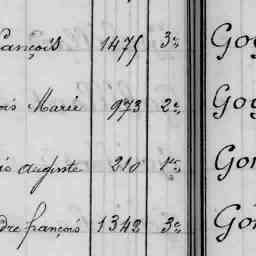 ançois 1475 3e Goy
ois Marie 973 2e Goy
is auguste 210 1re Gon
dre françois 1342 3e Gon